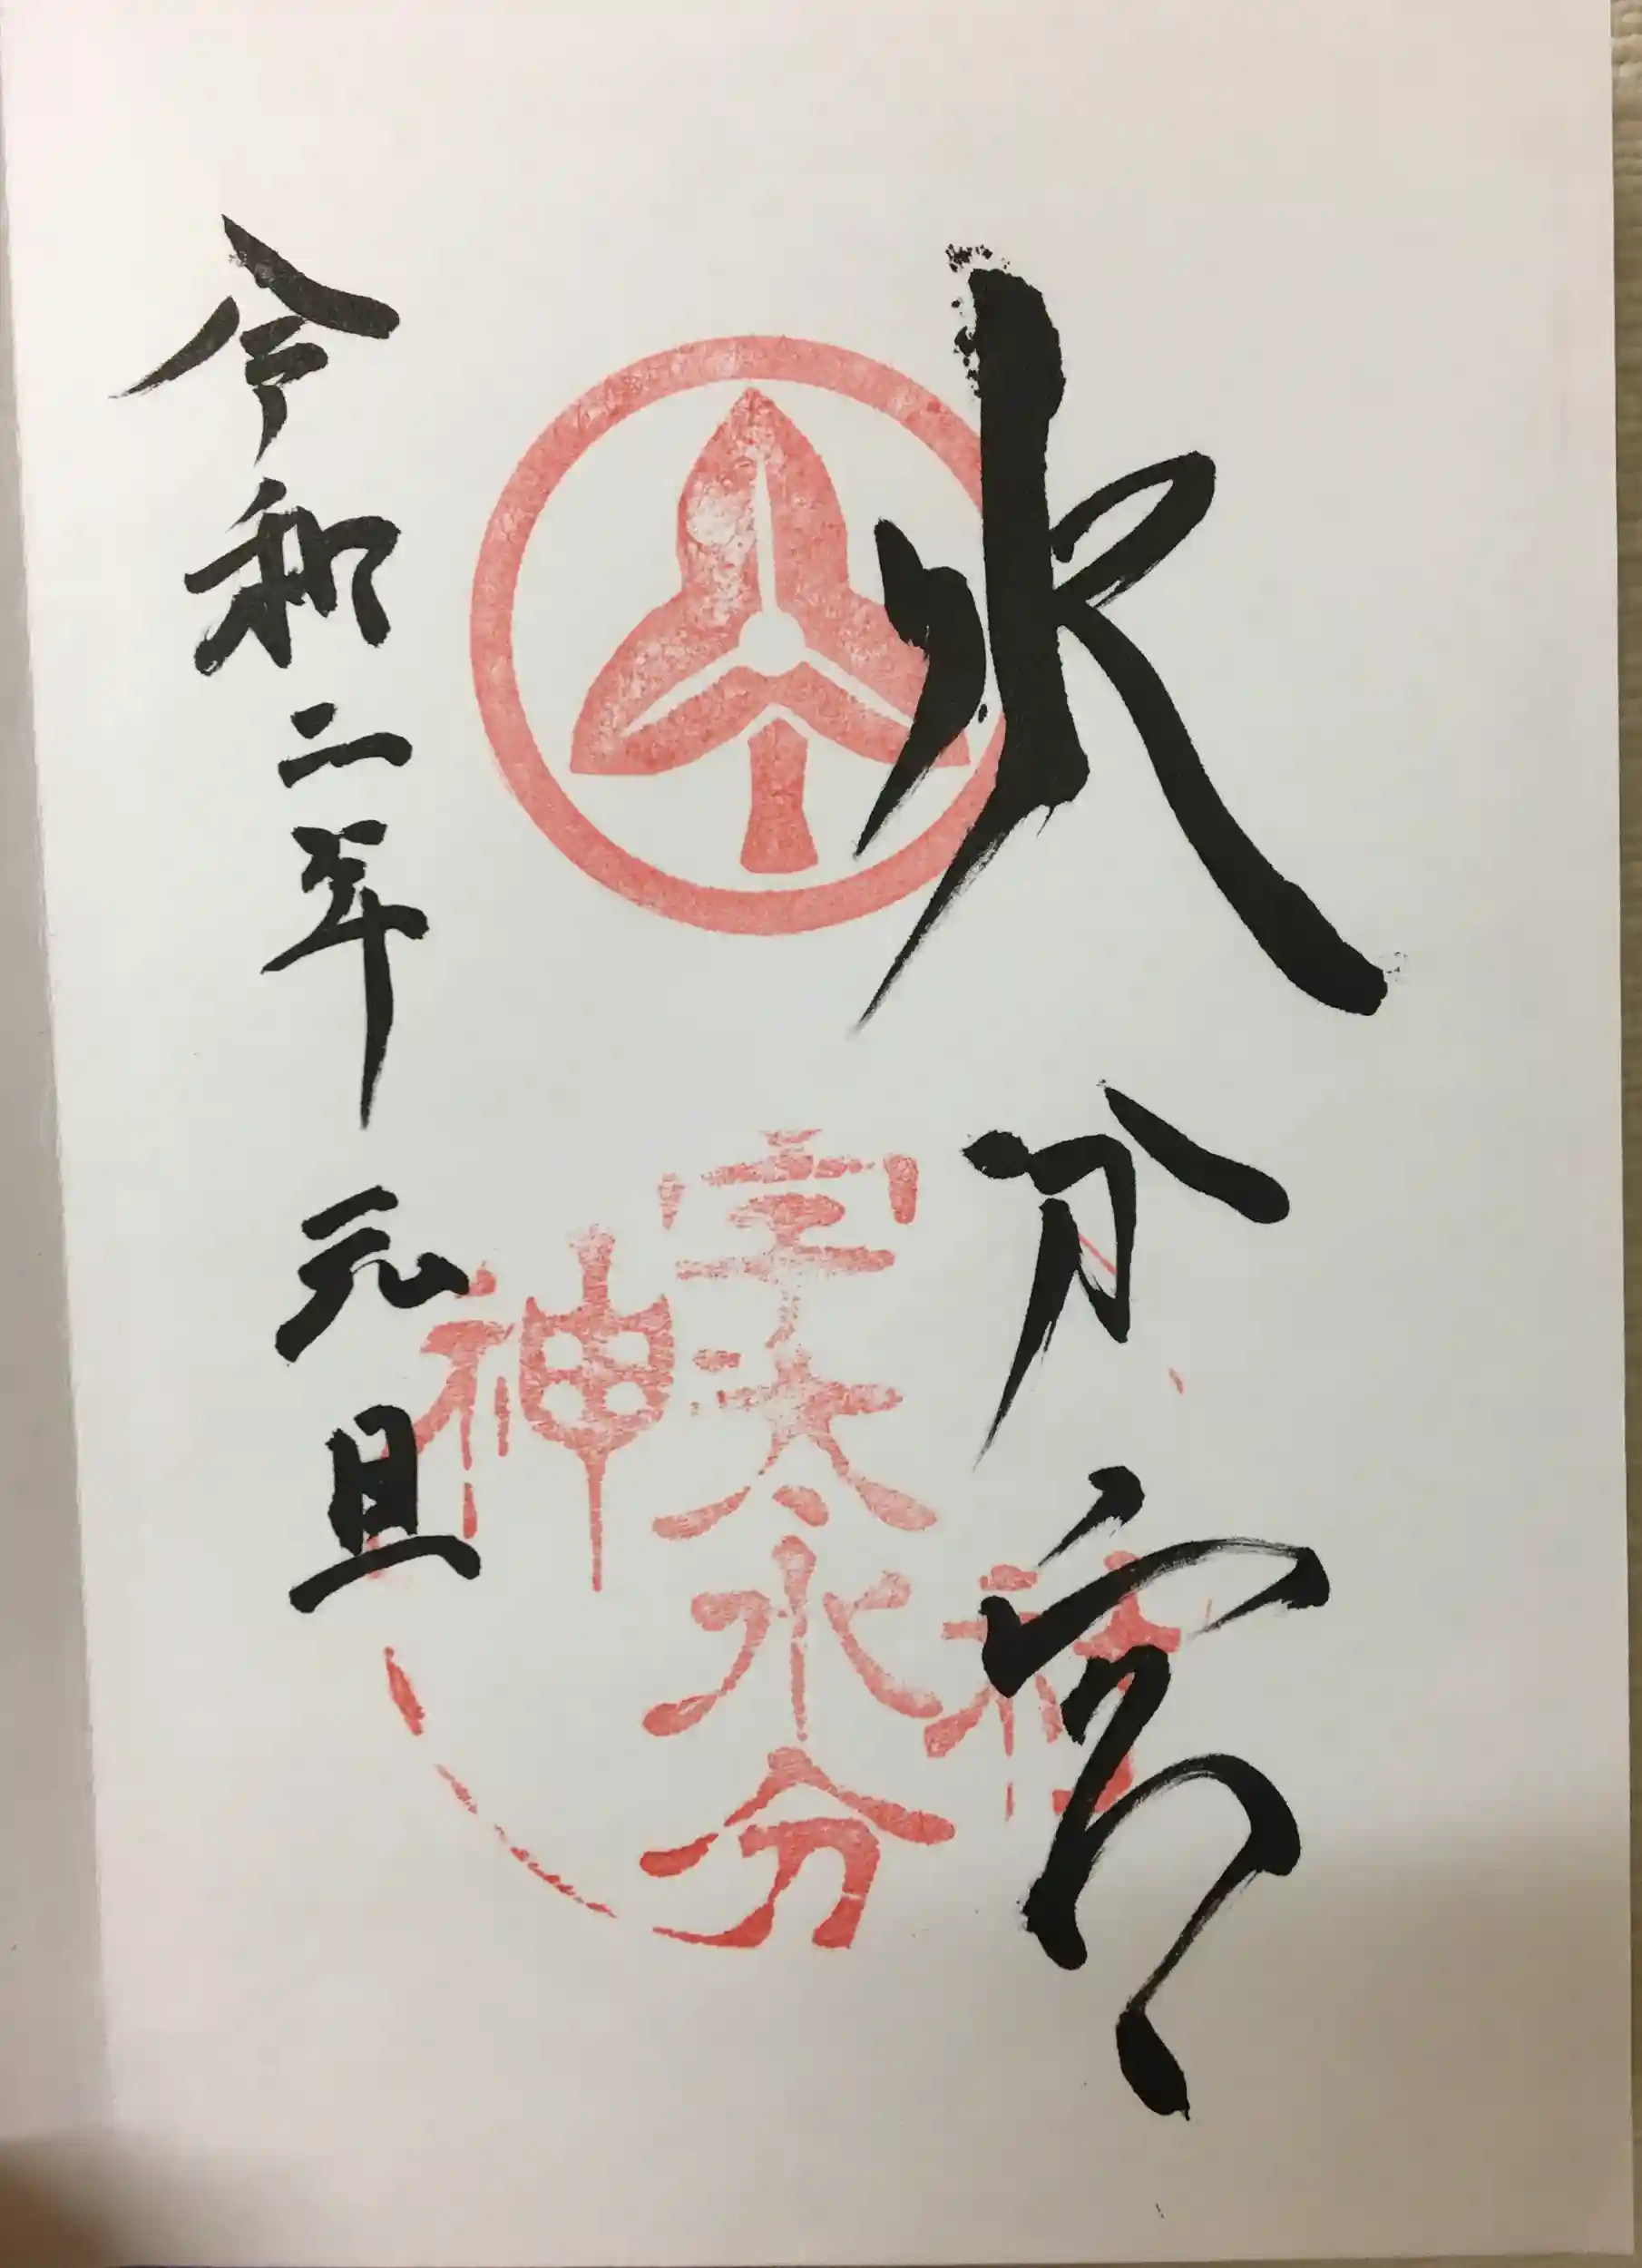 水分宮
宇太水分
神社
令和二年元旦